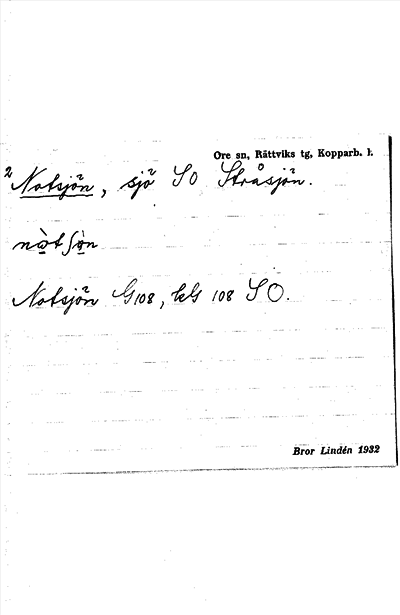 Ore sn, Rättviks tg, Kopparb. l.
2 Notsjön, sjö SO Stråsjön.
nòtʃön
Notsjön G108, kG 108 SO.
Bror Lindén 1932